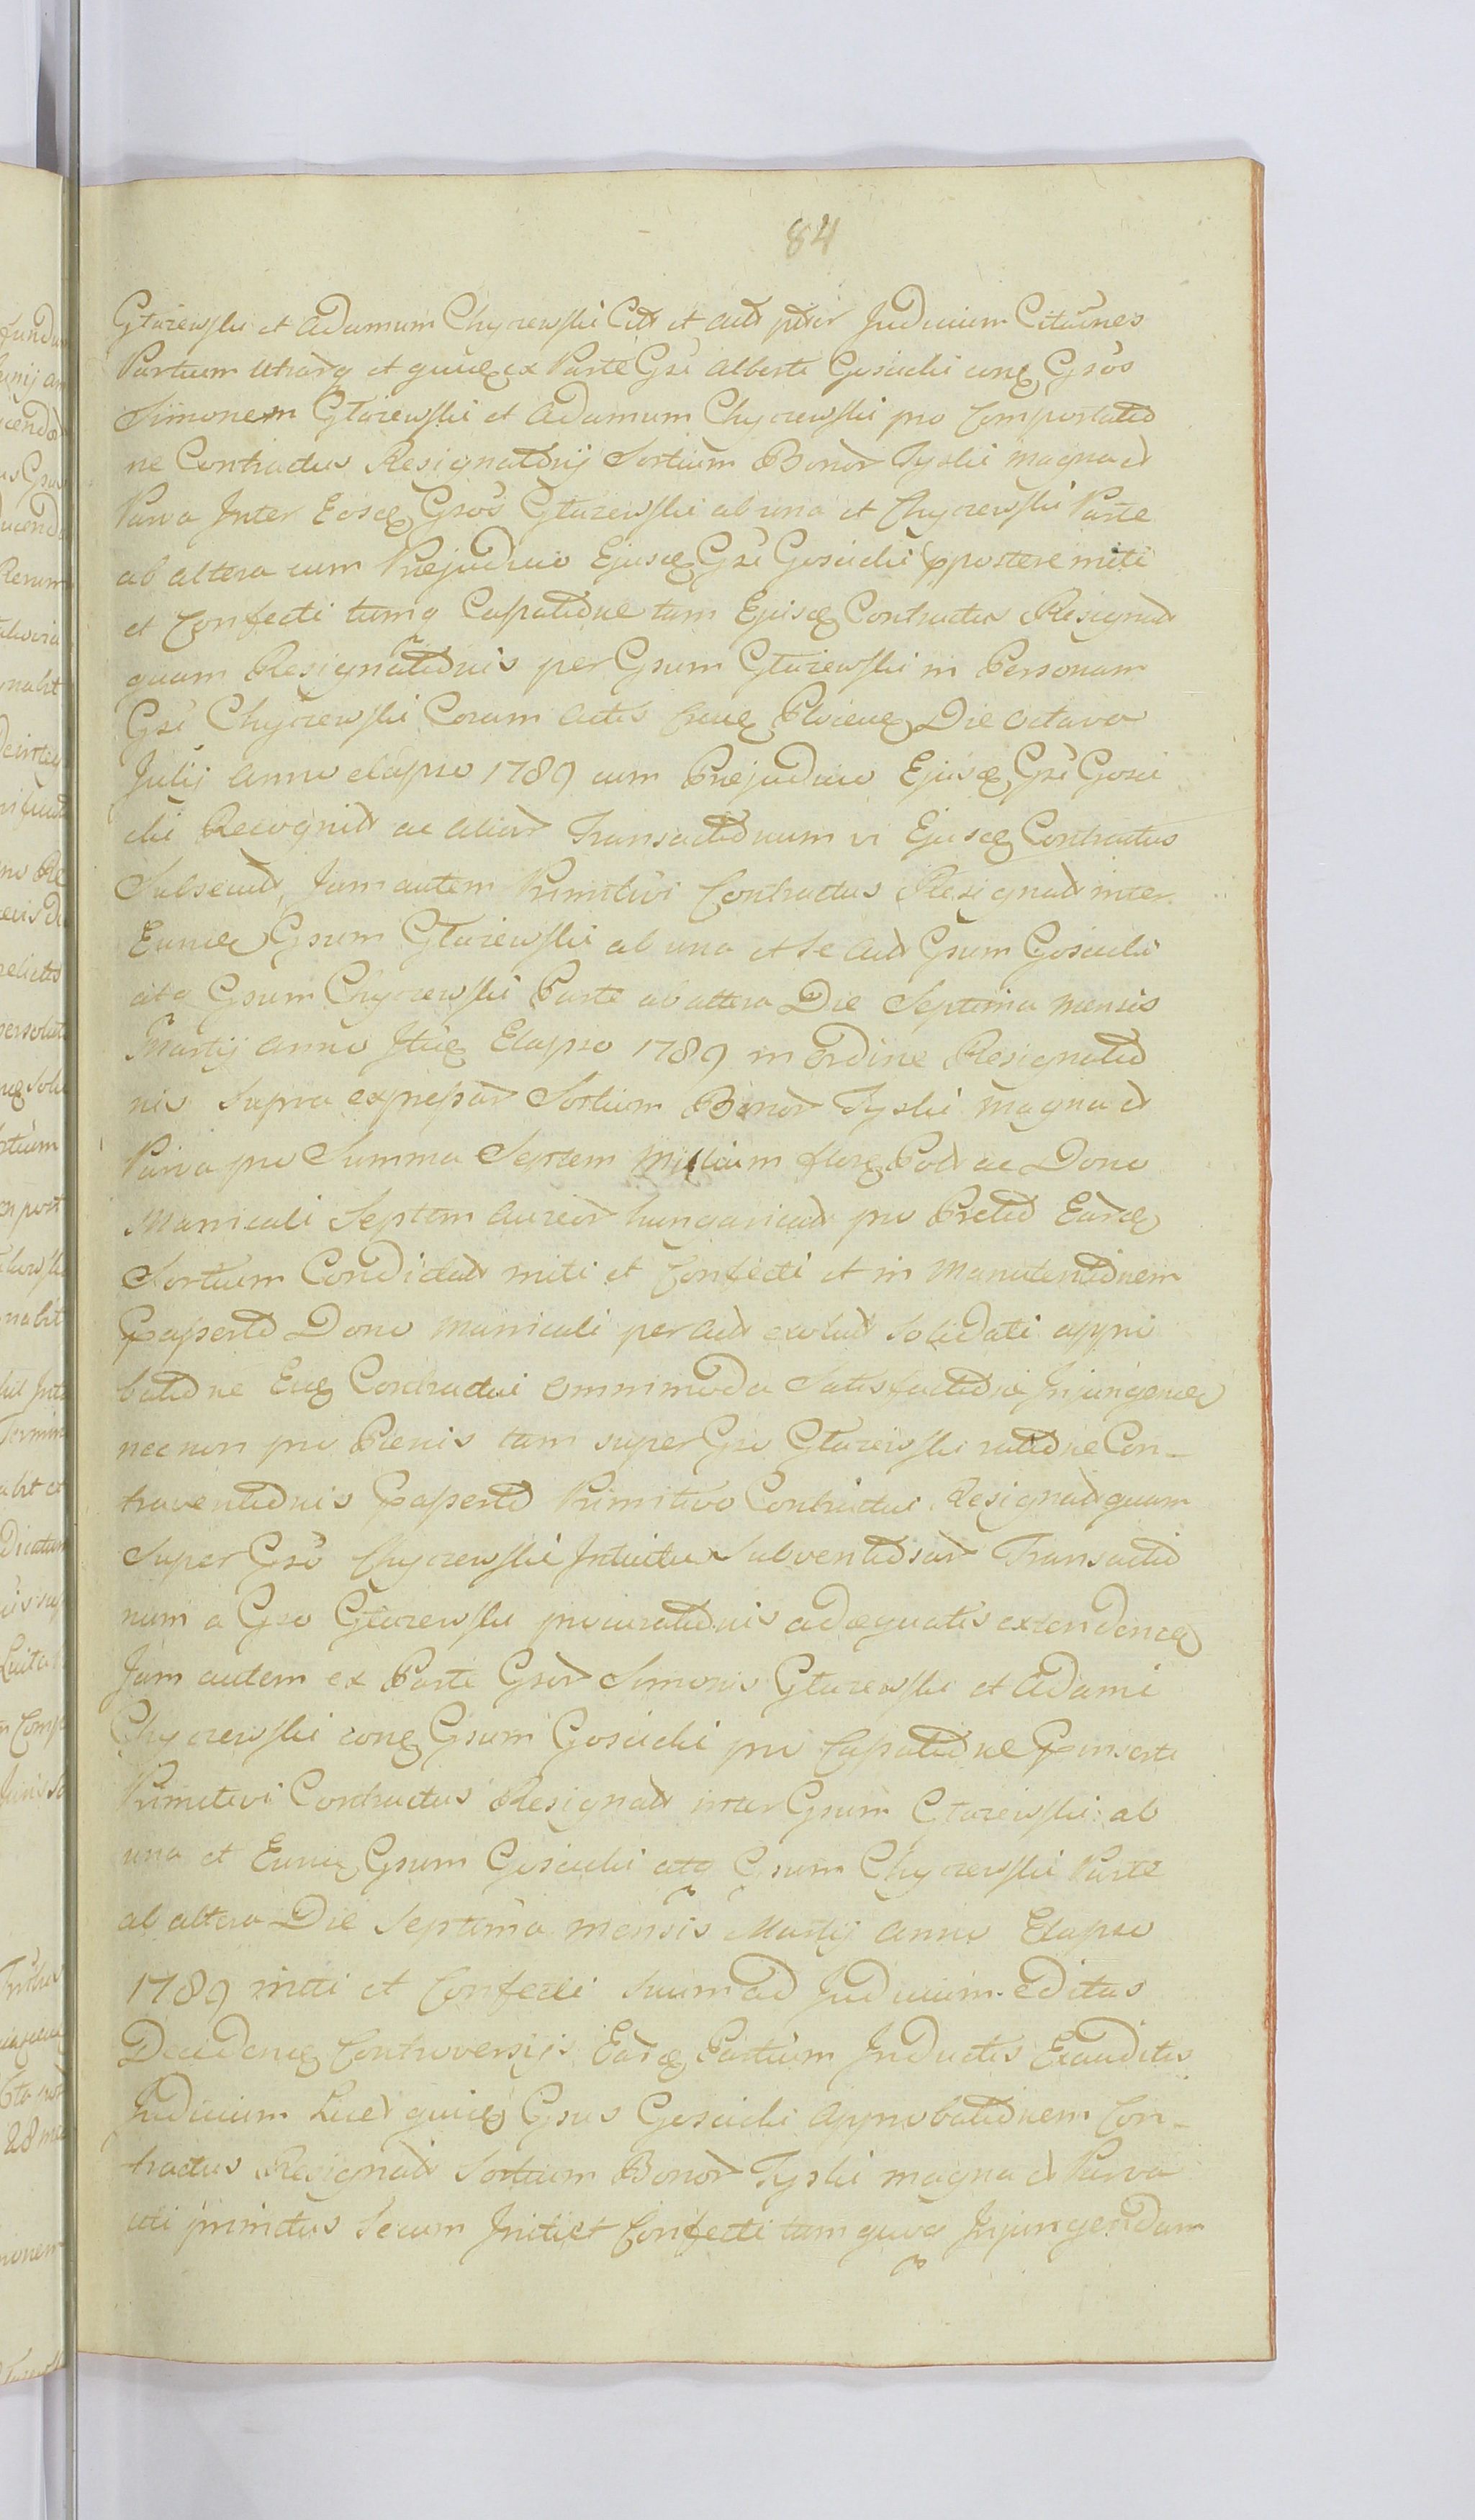 84
Głażewski et Adamum Chyczewski Citt et Actt pttor Judicium Citãones
Partium Utrarq et quideq ex Parte Gsi Alberti Gościcki conq Gsos
Simonem Głażewski et Adamum Chyczewski pro Comportatio
ne Contractus Resignatorij Sortium Bonor Tyski magna et
Parva Inter Eosdq Gsos Głażewski ab una et Chyczewski Parte
ab altera cum Præjudicio Ejusdq Gsi Gościcki postere initi
et Confecti tumq Cassatione tam Ejusdq Contractus Resignatt
quam Resignationis per Gsum Głażewski in Personam
Gsi Chyczewski Coram Actis Plocenq Die Octava
Julij Anno elapso 1789 cum Præjudicio Ejusdq Gsi Gości
cki Recognitt ac Aliar Transactionum vi Ejusdq Contractus
Subsecutt, Jam autem Primitivi Contractus Resignatt inter
Eundq Gsum Głażewski ab una et Se Actt Gsum Gościcki
atq Gsum Chyczewski Parte ab altera Die Septima mensis
Martij Anno Itidq Elapso 1789 in Ordine Resignatio
nis Supra expressar Sortium Bonor Tyski magna et
Parva pro Summa Septem Millium flor Pol ac Dono
Manicali Septem Aureor hungaricatt pro Pretio Eardq
Sortium Condictatt initi et Confecti et in Manutentionem
Præasserto Dono Manicali per Actt exolutt Solidati appro
batione Eiq Contractui Omnimoda Satisfactione Injungendq
nec non pro Pœnis tam super Gso Głażewski ratione Con-
traventionis Præasserto Primitivo Contractui Resignatt quam
Super Gso Chyczewski Intuitu Subventiosar Transactio
num a Gso Głażewski procurationis adæquatis extendendq
Jam autem ex Parte Gsor Simonis Głażewski et Adami
Chyczewski conq Gsum Gościcki pro Cassatione Præinserti
Primitivi Contractus Resignatt inter Gsum Głażewski ab
una et Eundq Gsum Gościcki atq Gsum Chyczewski Parte
ab altera Die Septima mensis Martij Anno Elapso
1789 initi et Confecti Suum ad Judicium editas
Decidendq Controversijs Eardq Partium Inductis Exauditis
Judicium Licet quideq Gsus Gościcki Approbationem Con-
tractus Resignatt Sortium Bonor Tyski magna et Parva
uti primitus Secum Initi et Confecti tam quoq Injungendam